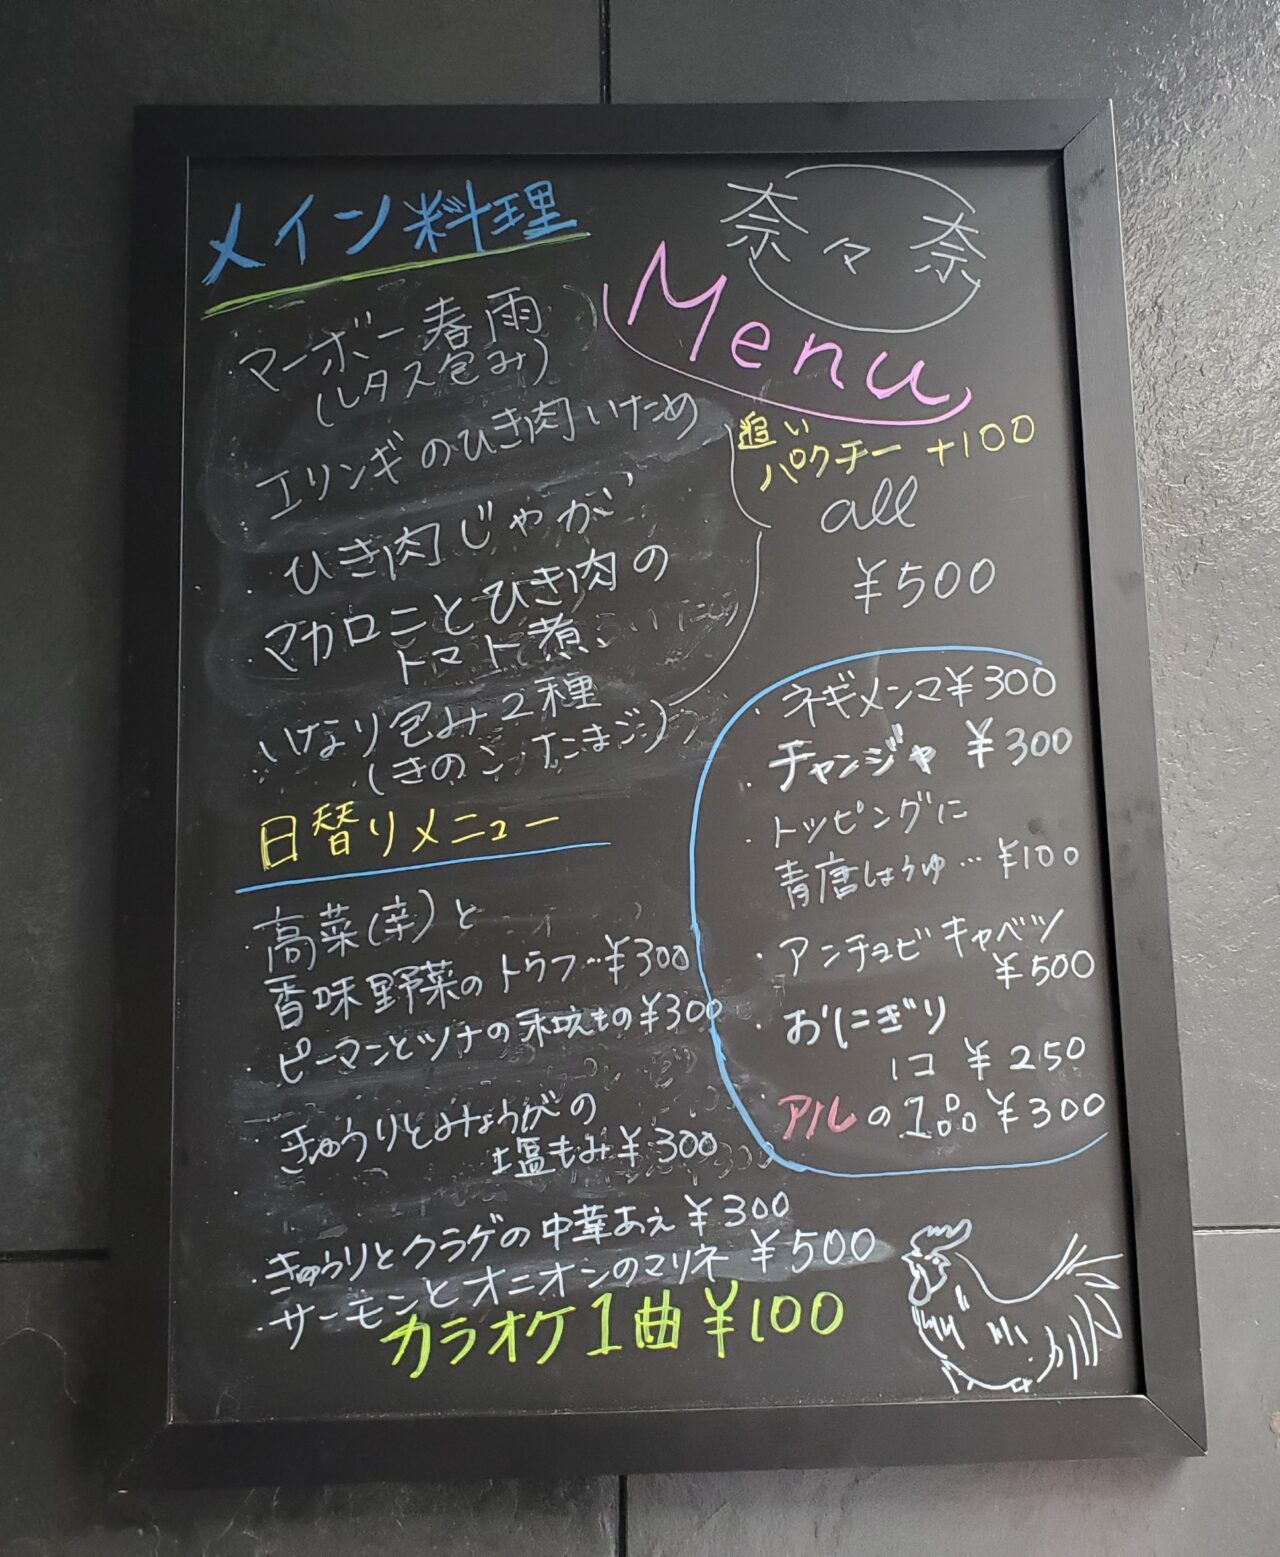 メイン料理
奈々奈
Menu
・マーボー春雨
(レタス包み)
・エリンギのひき肉いため
・ひき肉じゃが
・マカロニとひき肉の
トマト煮
・いなり包み2種
(きのこ、たまご)
追い
パクチー +100
all
¥500
日替りメニュー
・高菜(辛)と
香味野菜のトウフ…¥300
・ピーマンとツナの和えもの¥300
・きゅうりとみょうがの
塩もみ¥300
・きゅうりとクラゲの中華あえ¥300
・サーモンとオニオンのマリネ¥500
カラオケ1曲¥100
・ネギメンマ¥300
・チャンジャ ¥300
・トッピングに
青唐しょうゆ…¥100
・アンチョビキャベツ
¥500
・おにぎり
1コ ¥250
・アルの1品¥300